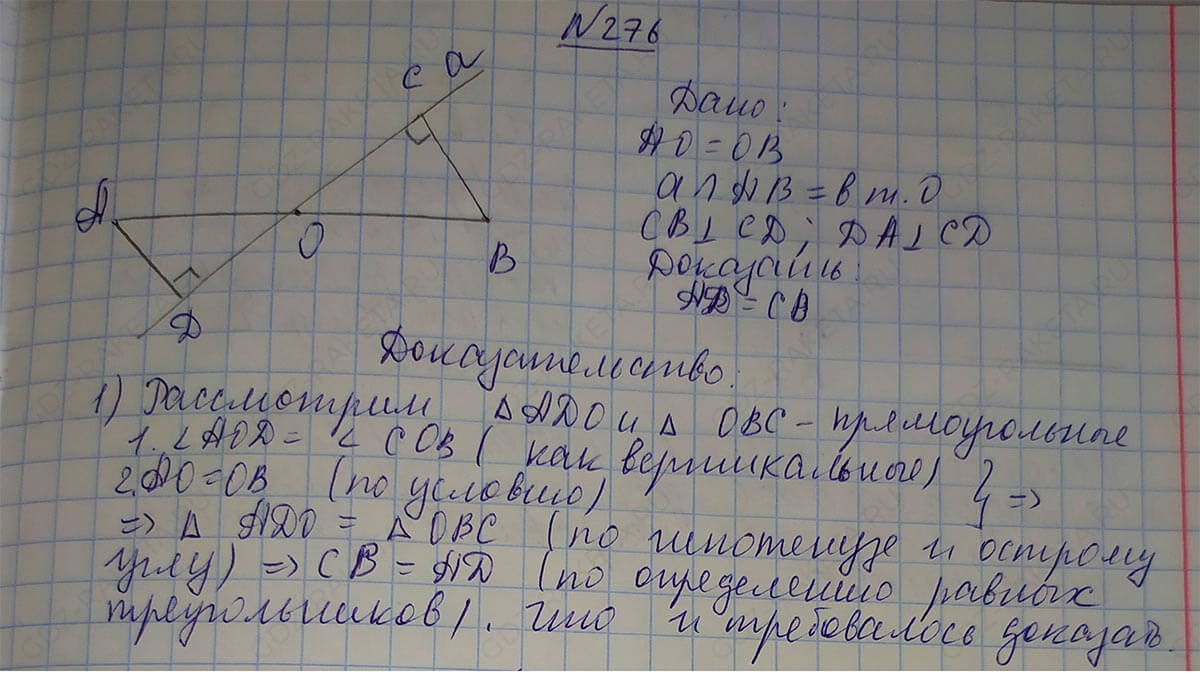 №276
C a
A
O
B
D
Дано:
AO = OB
a ∩ AB = в т. O
CB ⊥ CD; DA ⊥ CD
Доказать:
AD = CB
Доказательство:
1) Рассмотрим △ ADO и △ OBC – прямоугольные
1. ∠AOD = ∠ COB ( как вертикальные)
2. AO = OB (по условию) } =>
=> △ ADO = △ OBC (по гипотенузе и острому
углу) => CB = AD (по определению равных
треугольников). Что и требовалось доказать.